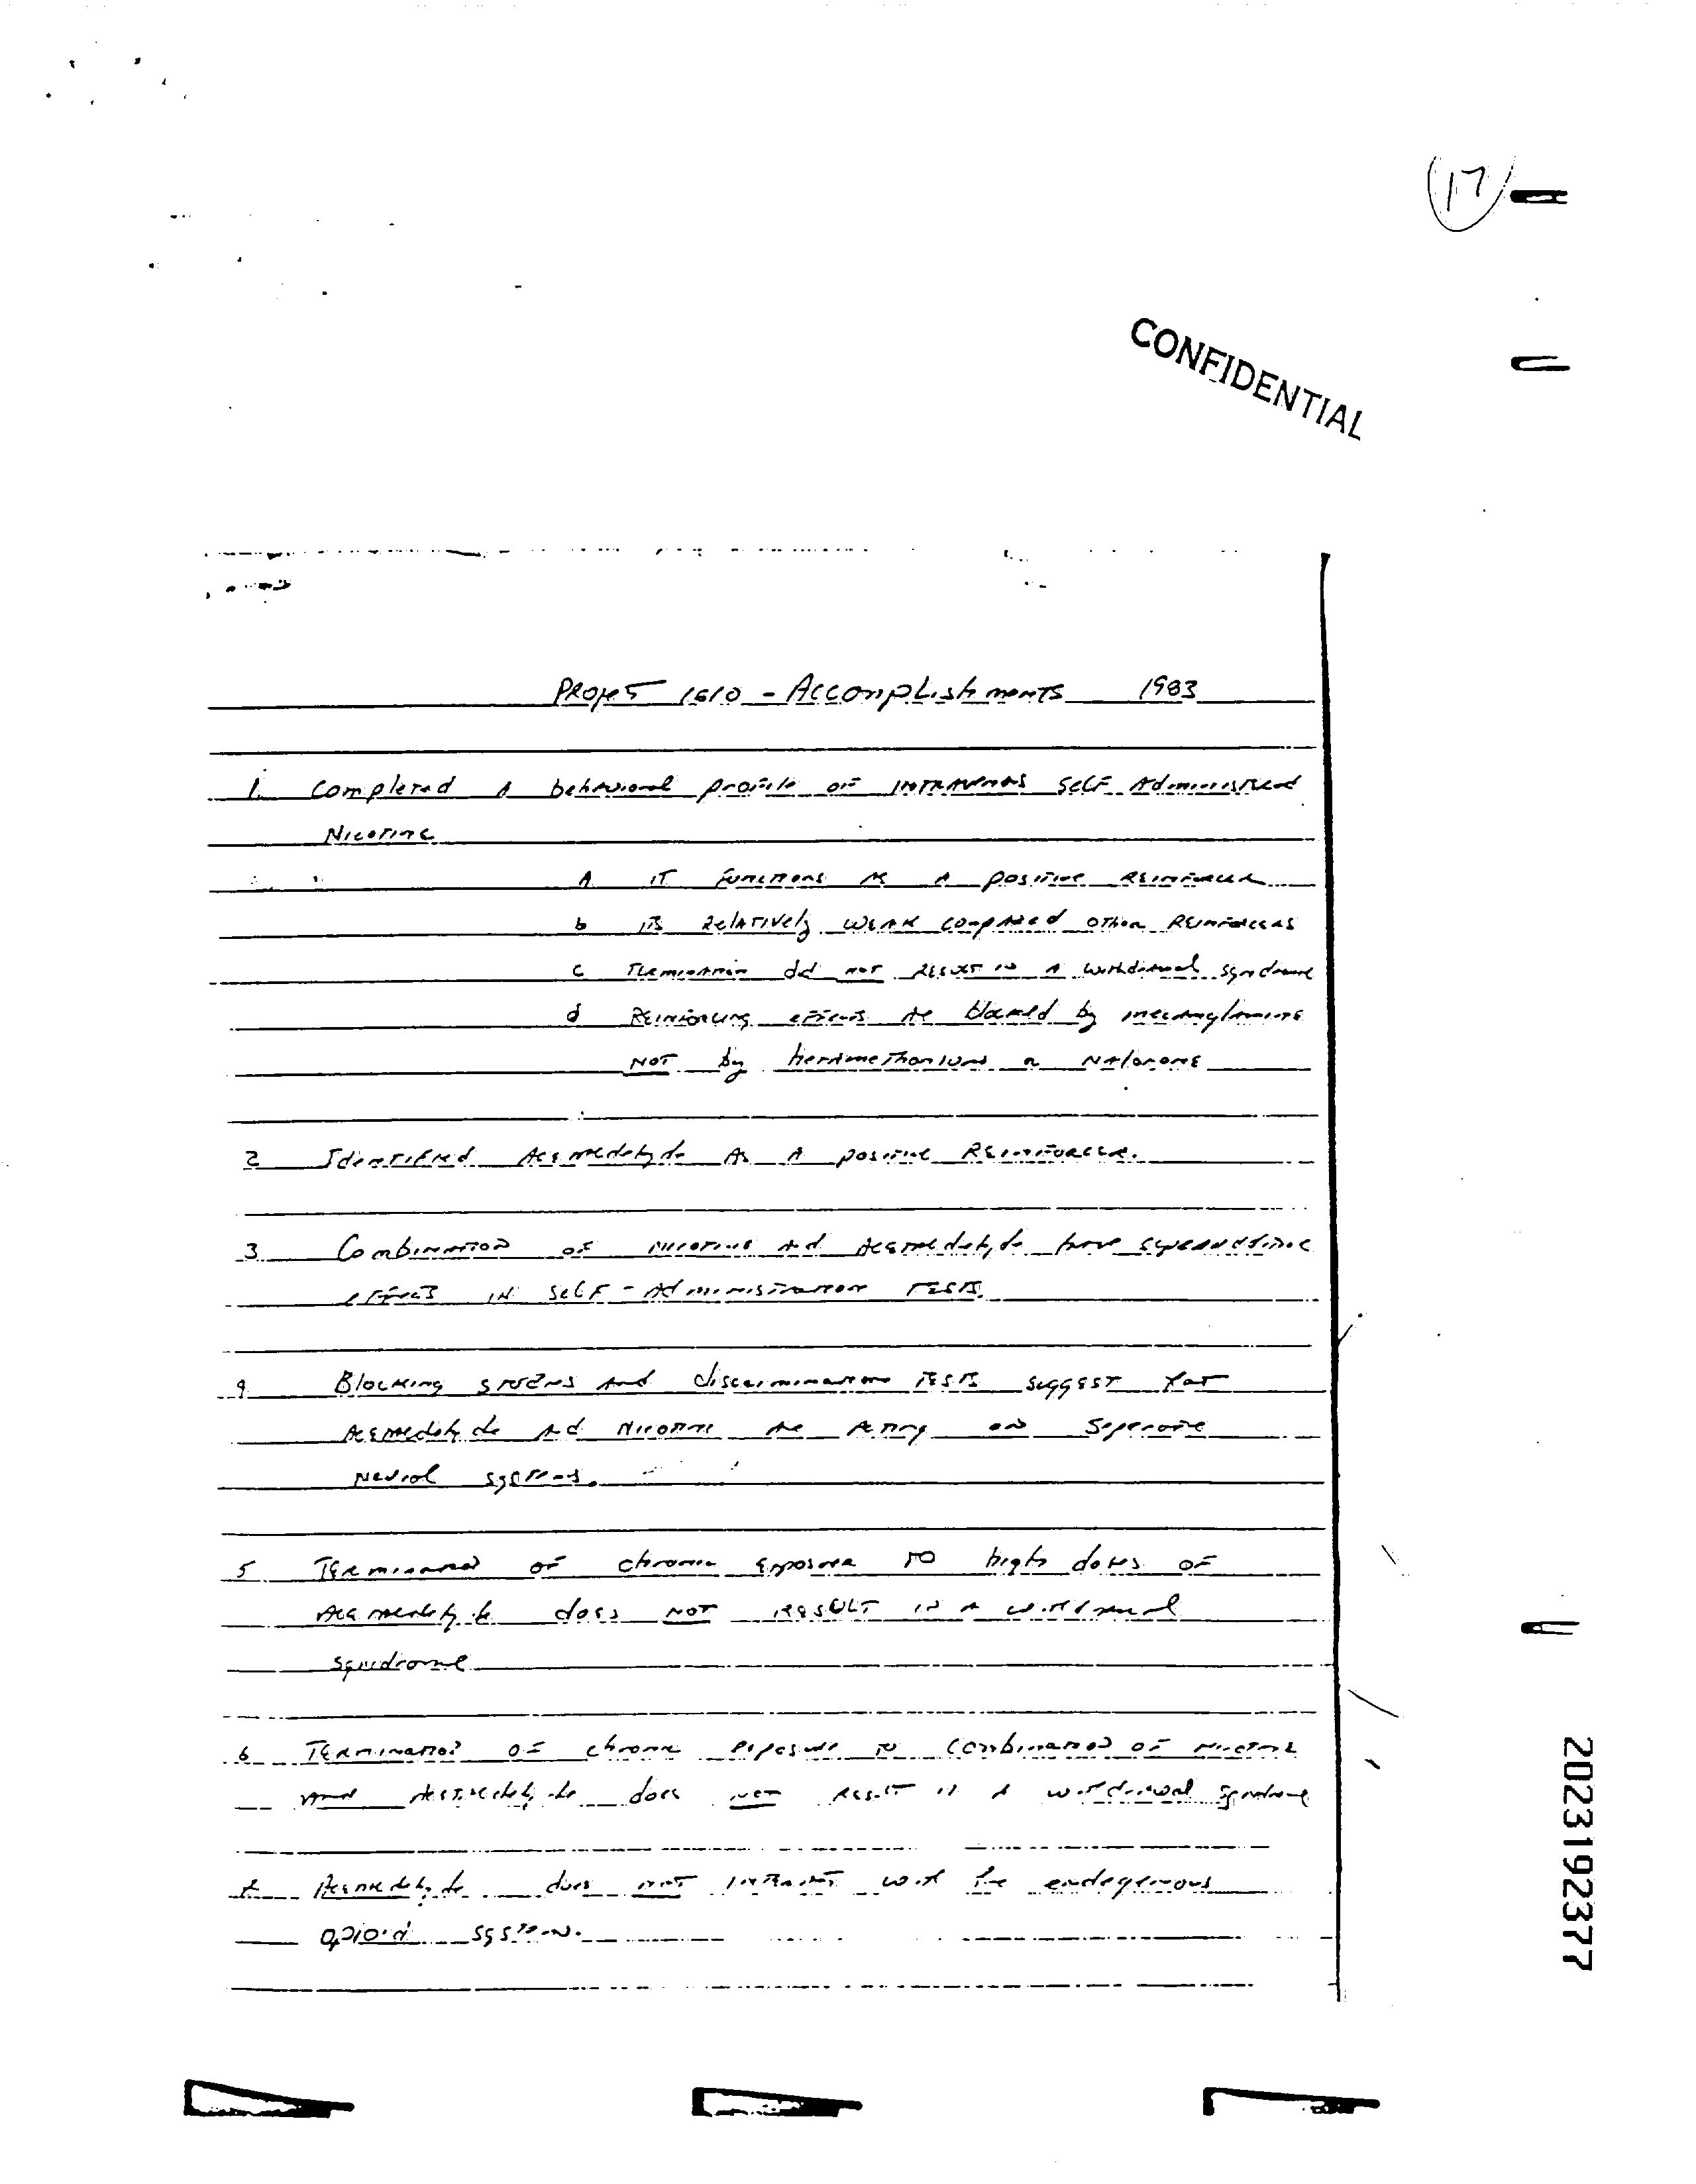 17
CONFIDENTIAL
Project 1610 - Accomplishments 1983
1. Completed A behavioral profile of INTRAVENOUS Self Administered
Nicotine
A IT functions as A positive Reinforcer
b its Relatively weak compared other Reinforcers
c Termination did not Result in A withdrawal syndrome
d Reinforcing effects are blocked by mecamylamine
NOT by hexamethonium or Naloxone
2 Identified Acetaldehyde As A positive Reinforcer.
3 Combination of nicotine and Acetaldehyde have superadditive
effects IN Self-Administration Tests.
4 Blocking studies and discrimination Tests suggest that
Acetaldehyde and Nicotine are Acting on Seperate
Neural systems.
5 Termination of chronic exposure TO high doses of
Acetaldehyde does NOT RESULT in A withdrawal
syndrome
6 Termination of chronic exposure to combination of nicotine
and Acetaldehyde does not Result in A withdrawal syndrome
Acetaldehyde does not interact with the endogenous
opioid system.
2023192377